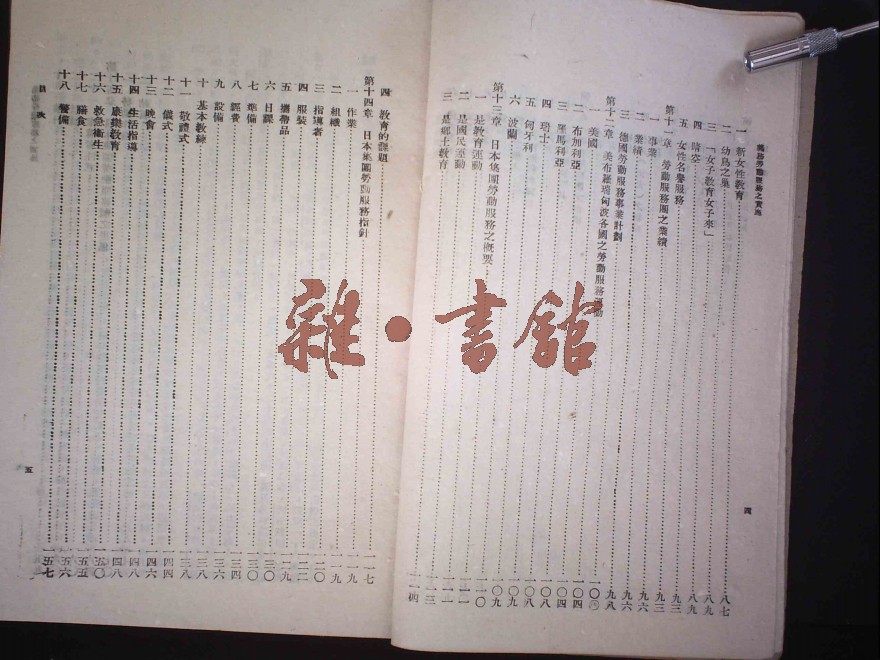 義務勞動理論之實施
一 新女性教育 八七
二 幼鳥之巢 八八
三 「女子教育女子來」 八九
四 晴空 八九
五 女性名譽服務 九三
第十一章 勞動服務團之業績 九三
一 事業 九三
二 業績 九六
三 德國勞動服務事業計劃 九六
第十二章 美布羅瑞匈波各國之勞動服務運動 九八
一 美國 一〇〇
二 布加利亞 一〇四
三 羅馬利亞 一〇四
四 瑞士 一〇八
五 匈牙利 一〇九
六 波蘭 一〇九
第十三章 日本集團勞動服務之概要 一一〇
一 是教育運動 一一一
二 是國民運動 一一二
三 是鄉土教育 一一四
四
四 教育的課題 一一七
第十四章 日本集團勞動服務指針 一一九
一 作業 一一九
二 組織 一一九
三 指導者 一二〇
四 服裝 一二二
五 攜帶品 一二九
六 日課 一三〇
七 準備 一三〇
八 經費 一三四
九 設備 一三六
十 基本教練 一三八
十一 敬禮式 一三八
十二 儀式 一四四
十三 映會 一四六
十四 生活指導 一四八
十五 康樂教育 一四八
十六 救急衛生 一五〇
十七 膳食 一五五
十八 警備 一五六
一五七
目次
五
雜·書館